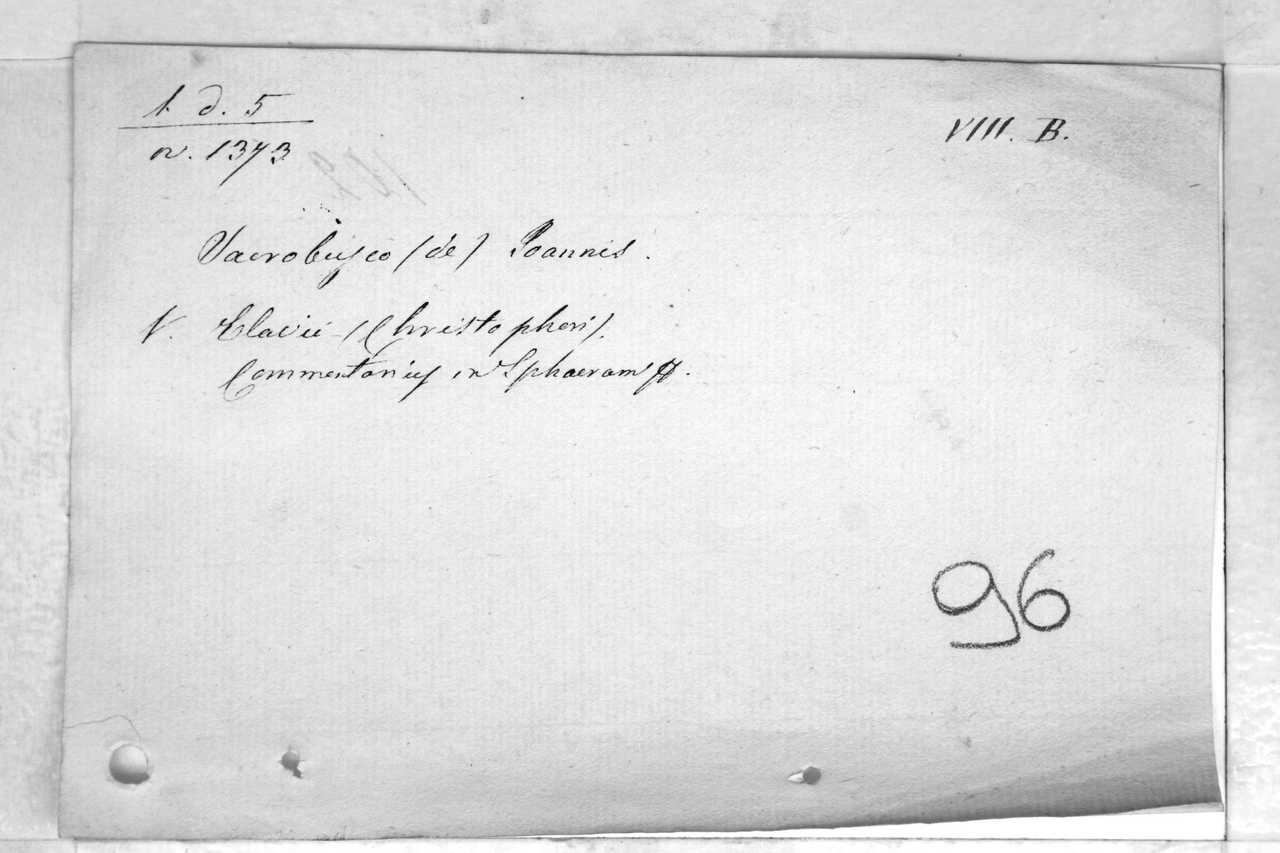 1. d. 5
VIII. B.
n. 1373
Sacrobusco (de) Joannis.
V. Clavii (Christophori).
Commentarius in Sphaeram
96